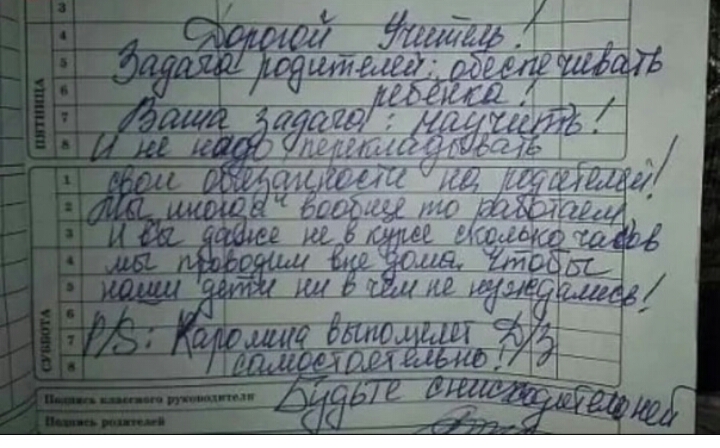 3
4
Дорогой Учитель!
5
Задача родителей: обеспечивать
6
ребёнка!
7
Ваша задача: научить!
8
И не надо перекладывать
ПЯТНИЦА
1
свои обязанности на родителей!
2
Мы иногда вообще то работаем
3
И вы даже не в курсе сколько часов
4
мы проводим вне дома. Чтобы
5
наши дети ни в чем не нуждались!
6
7
P/S: Каролина выполняет Д/З
8
самостоятельно!
СУББОТА
Подпись классного руководителя
Будьте снисходительней
Подпись родителей